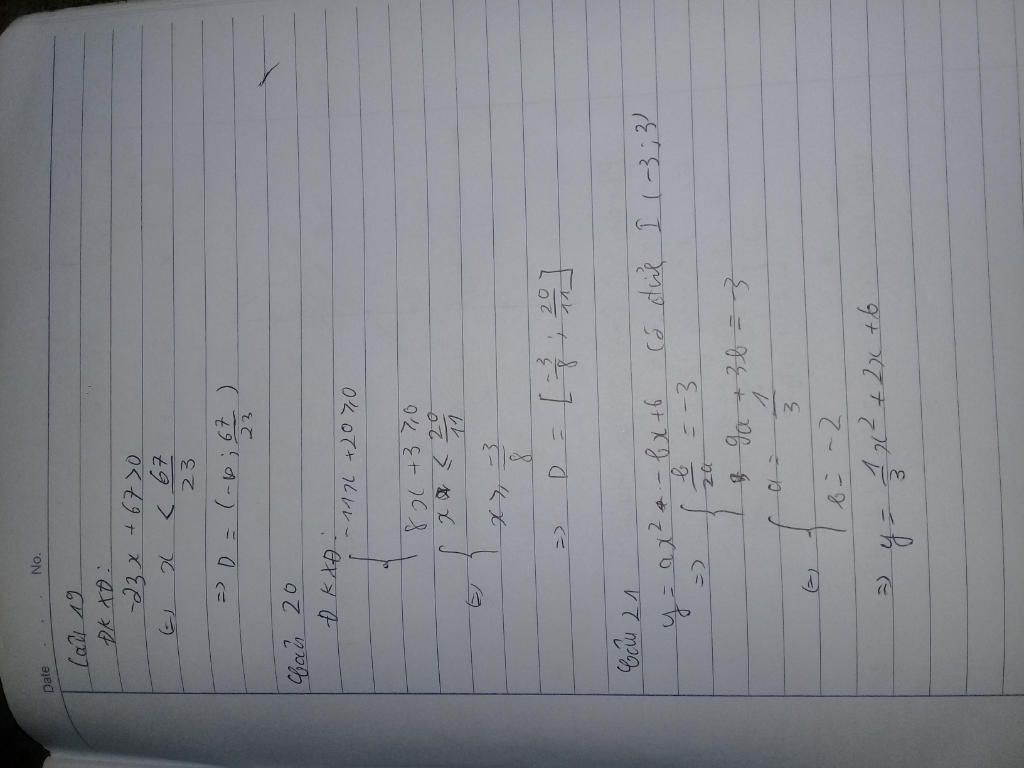 Date . . . No.
Câu 19
ĐKXĐ:
-23x + 67 > 0
(=) x < 67/23
=> D = (-∞; 67/23)
Câu 20
ĐKXĐ:
{ -11x + 20 ≥ 0
8x + 3 ≥ 0
(=) { x ≤ 20/11
x ≥ -3/8
=> D = [-3/8; 20/11]
Câu 21
y = ax² - bx + 6 có đỉnh I (-3; 3)
=> { b/2a = -3
9a + 3b = -3
(=) { a = 1/3
b = -2
=> y = 1/3 x² + 2x + 6